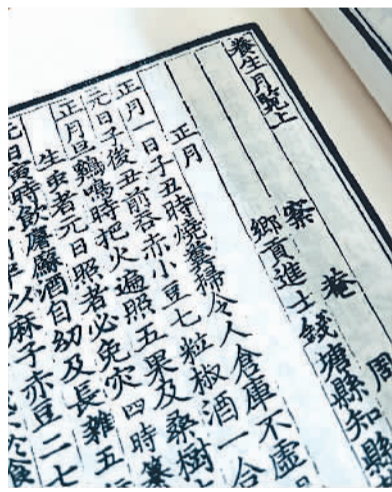 養生月覽上
菴 周
鄉貢進士錢塘縣知縣
正月
正月一日子丑時燒糞掃令人倉庫不虛
元日子後丑前吞赤小豆七粒椒酒一合
正月旦雞鳴時把火遍照五果及桑樹
生虫者元日照者必免灾四時纂
元日寅時飲屠蘇酒自幼及長雜五
以麻子赤豆二七